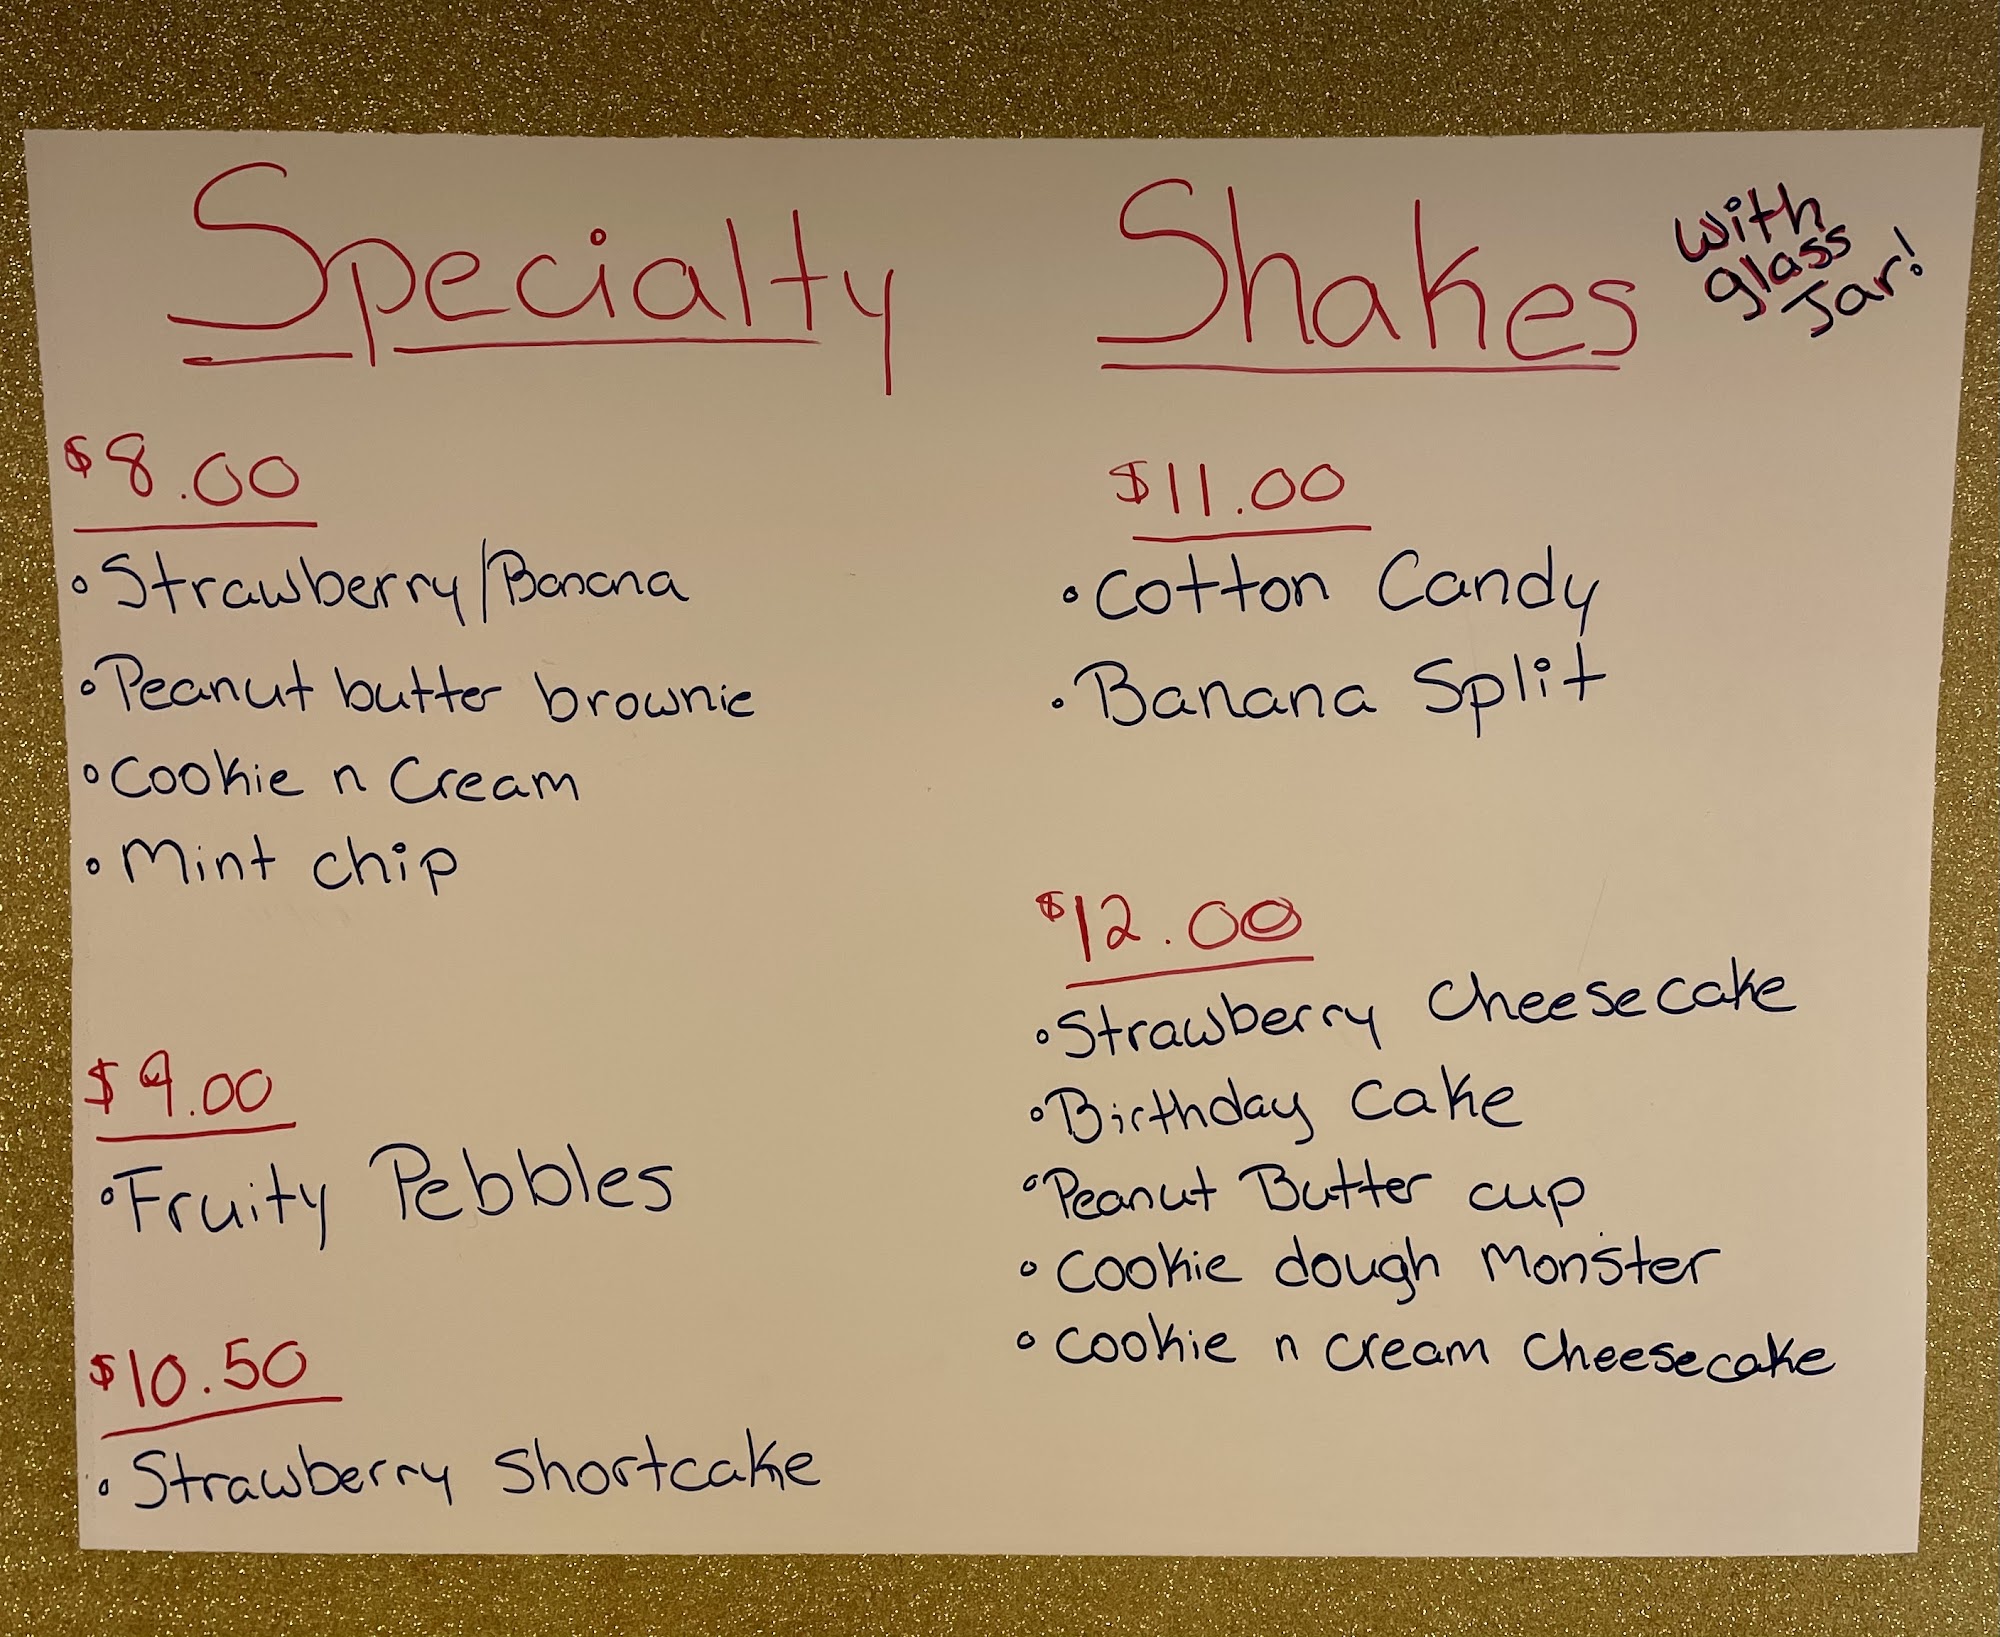 Specialty Shakes
With
glass
Jar!
$8.00
• Strawberry/Banana
• Peanut butter brownie
• Cookie n Cream
• Mint chip
$9.00
• Fruity Pebbles
$10.50
• Strawberry Shortcake
$11.00
• Cotton Candy
• Banana Split
$12.00
• Strawberry Cheesecake
• Birthday Cake
• Peanut Butter cup
• Cookie dough Monster
• Cookie n cream Cheesecake